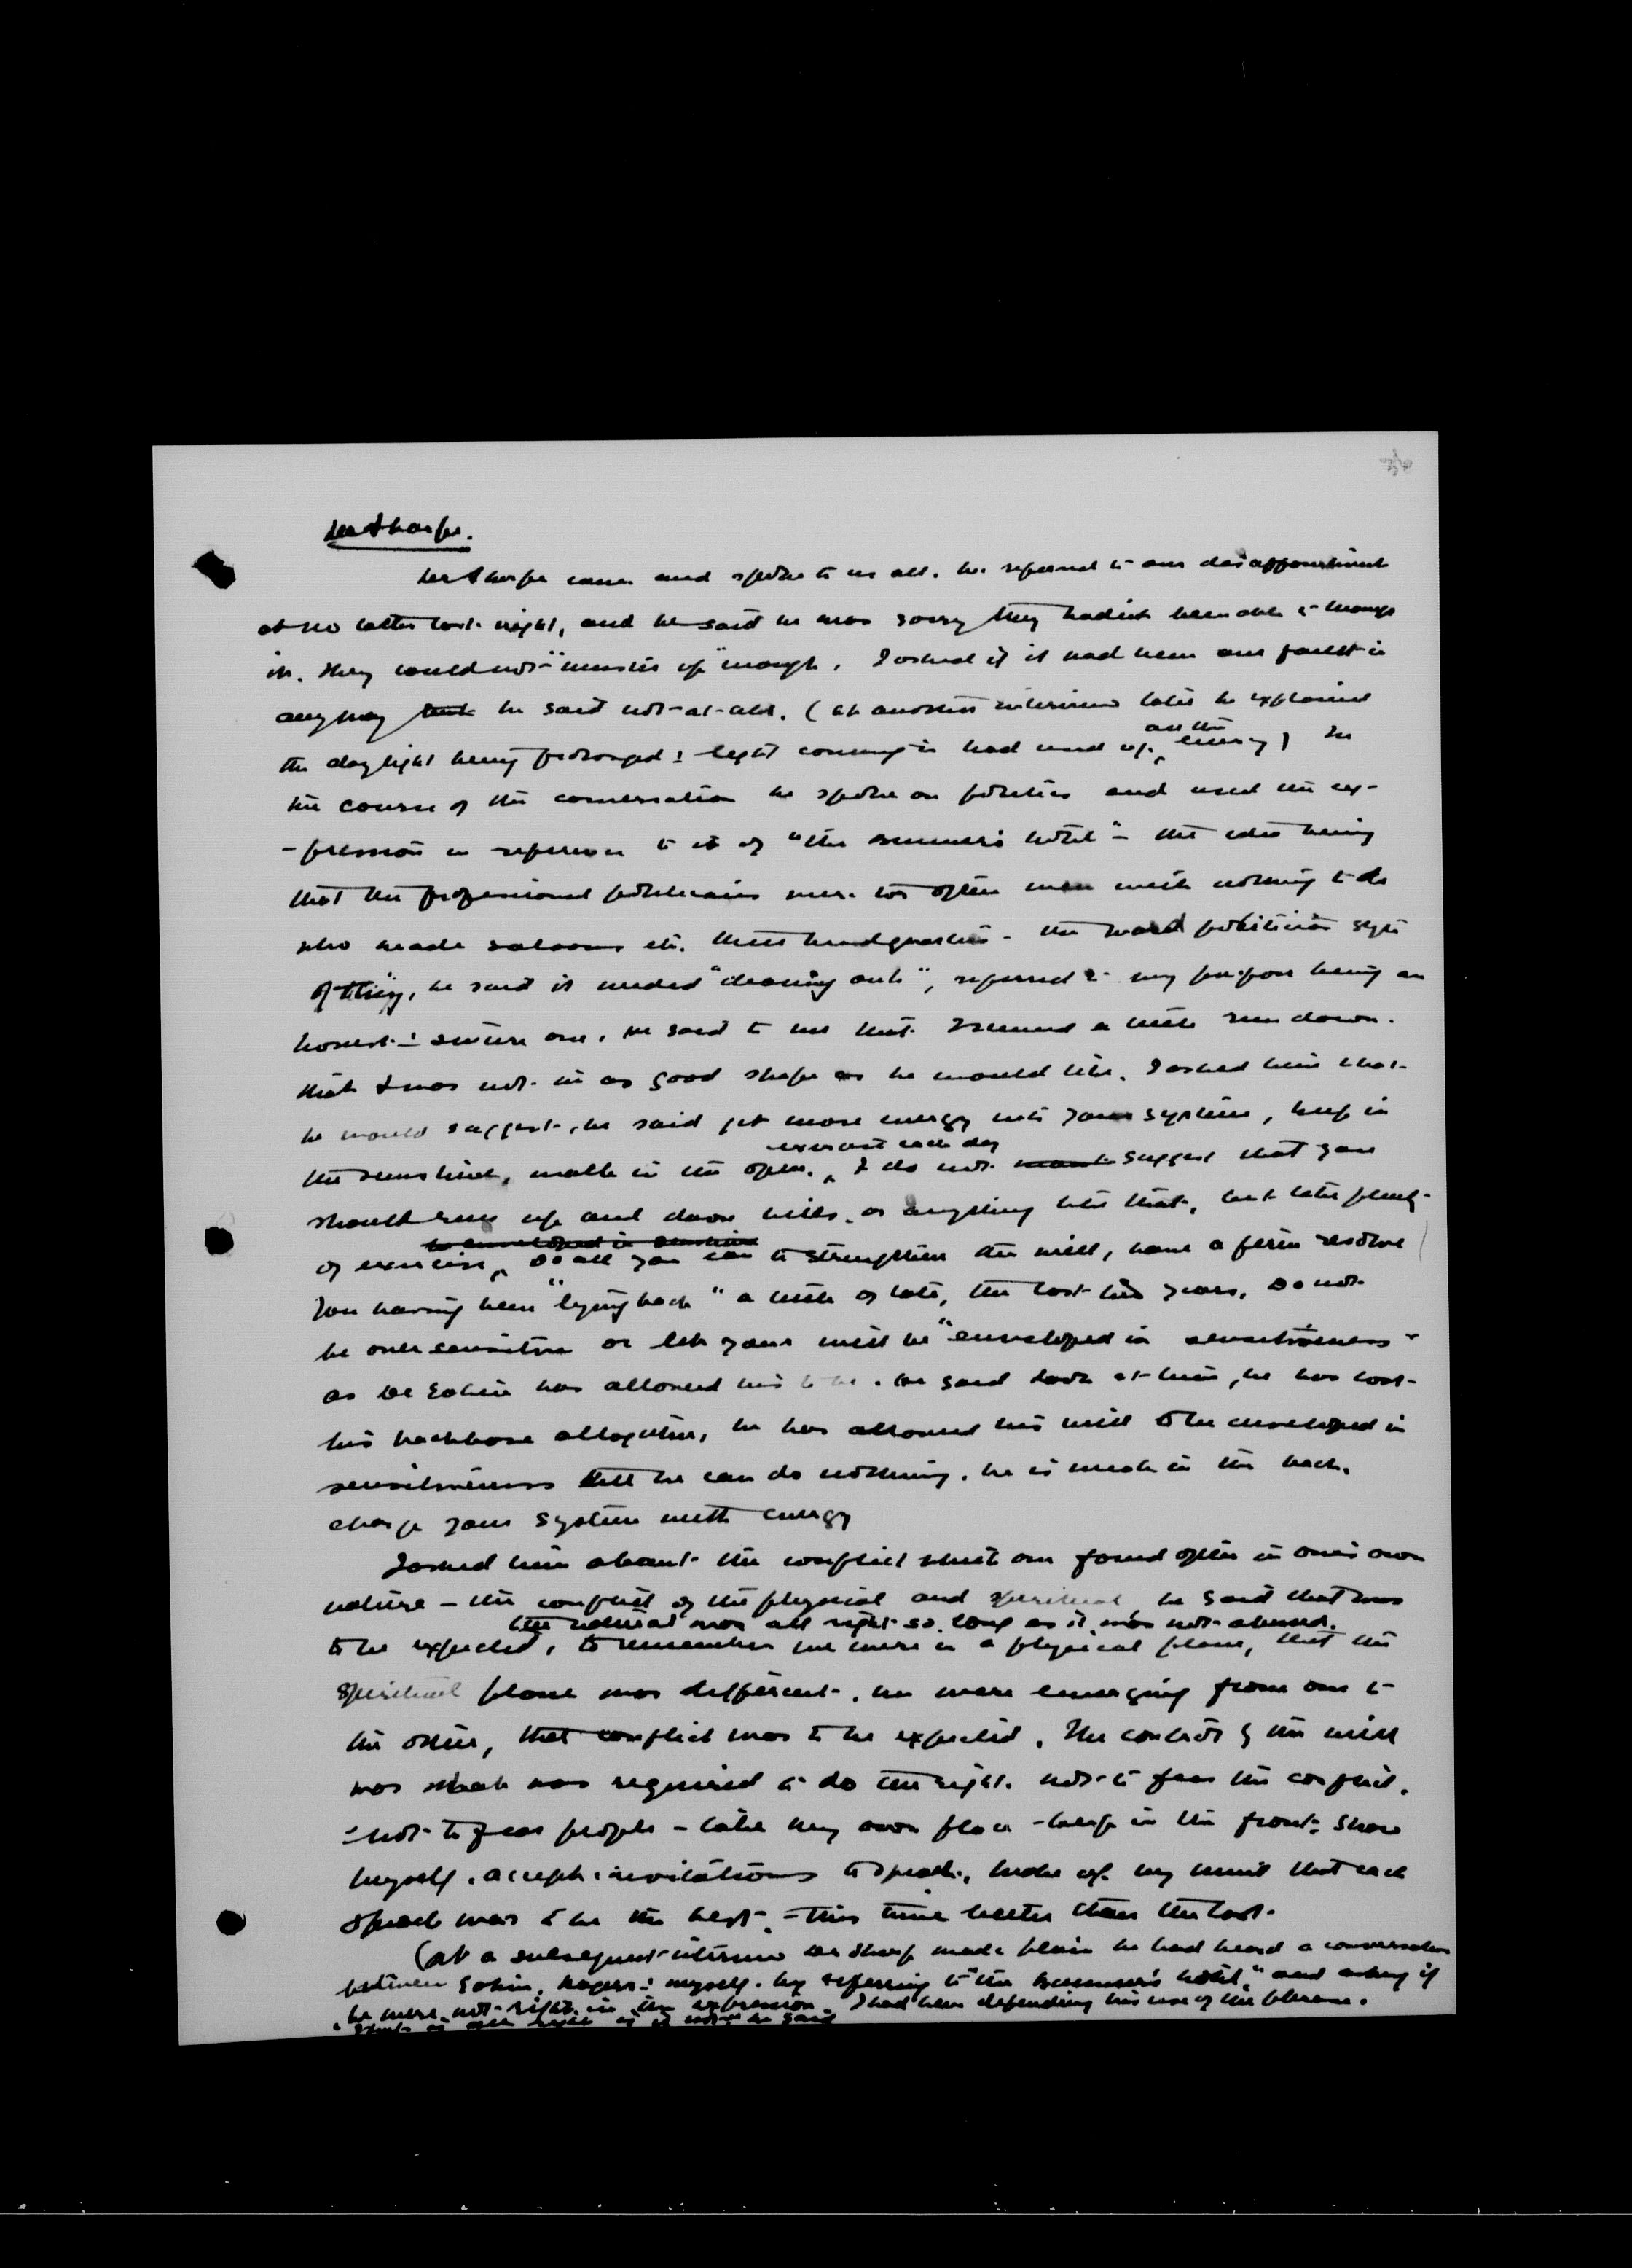 Dr Sharpe.
Dr Sharpe came and spoke to us all. he referred to our disappointment
at no letter last night, and he said he was sorry they hadn't been able to manage
it. They could not "muster up" enough. I asked if it had been our fault in
any way he said not-at-all. (at another interview later he explained
the daylight being prolonged & light coming in had used up all the energy) In
the course of the conversation he spoke on politics and used the ex-
-pression in reference to it of "the hotel" – the idea being
that the professional politicians were too often men with nothing to do
who made saloons etc. their headquarters – the ward politician style
of thing, he said it needed "cleaning out", referred to my purpose being an
honest & sincere one, he said to me that I seemed a little run down.
that I was not in as good shape as he would like. I asked him what
he would suggest, he said get more energy into your system, keep in
the sunshine, walk in the open. exercise each day I do not want suggest that you
should run up and down hills, or anything like that, but take plenty
of exercise, be enveloped in sunshine Do all you can to strengthen the will, have a firm resolve
You having been "lying back" a little of late, the last two years, Do not
be over sensitive or let your will be "enveloped in sensitiveness"
as De Sohin has allowed his to be. he said look at him, he has lost
his backbone altogether, he has allowed his will to be enveloped in
sensitiveness till he can do nothing. he is weak in the back.
charge your system with energy
I asked him about the conflict which one found often in one's own
nature – the conflict of the physical and spiritual he said that was
the natural was all right so long as it was not abused.
to be expected, to remember we were in a physical plane, that the
spiritual plane was different, we were emerging from one to
the other, that conflict was to be expected. The control of the will
was what was required to do the right. not to fear the conflict.
& not to fear people – take my own place – keep in the front, show
myself, accept invitations to speak, make up my mind that each
speech was to be the best, – this time better than the last.
(at a subsequent interview Dr Sharp made plain he had heard a conversation
between Sohin, Rogers & myself, by referring to "the hotel," and asking if
he were not right in the expression. I had been defending his use of the phrase.
is all right is it not" he said